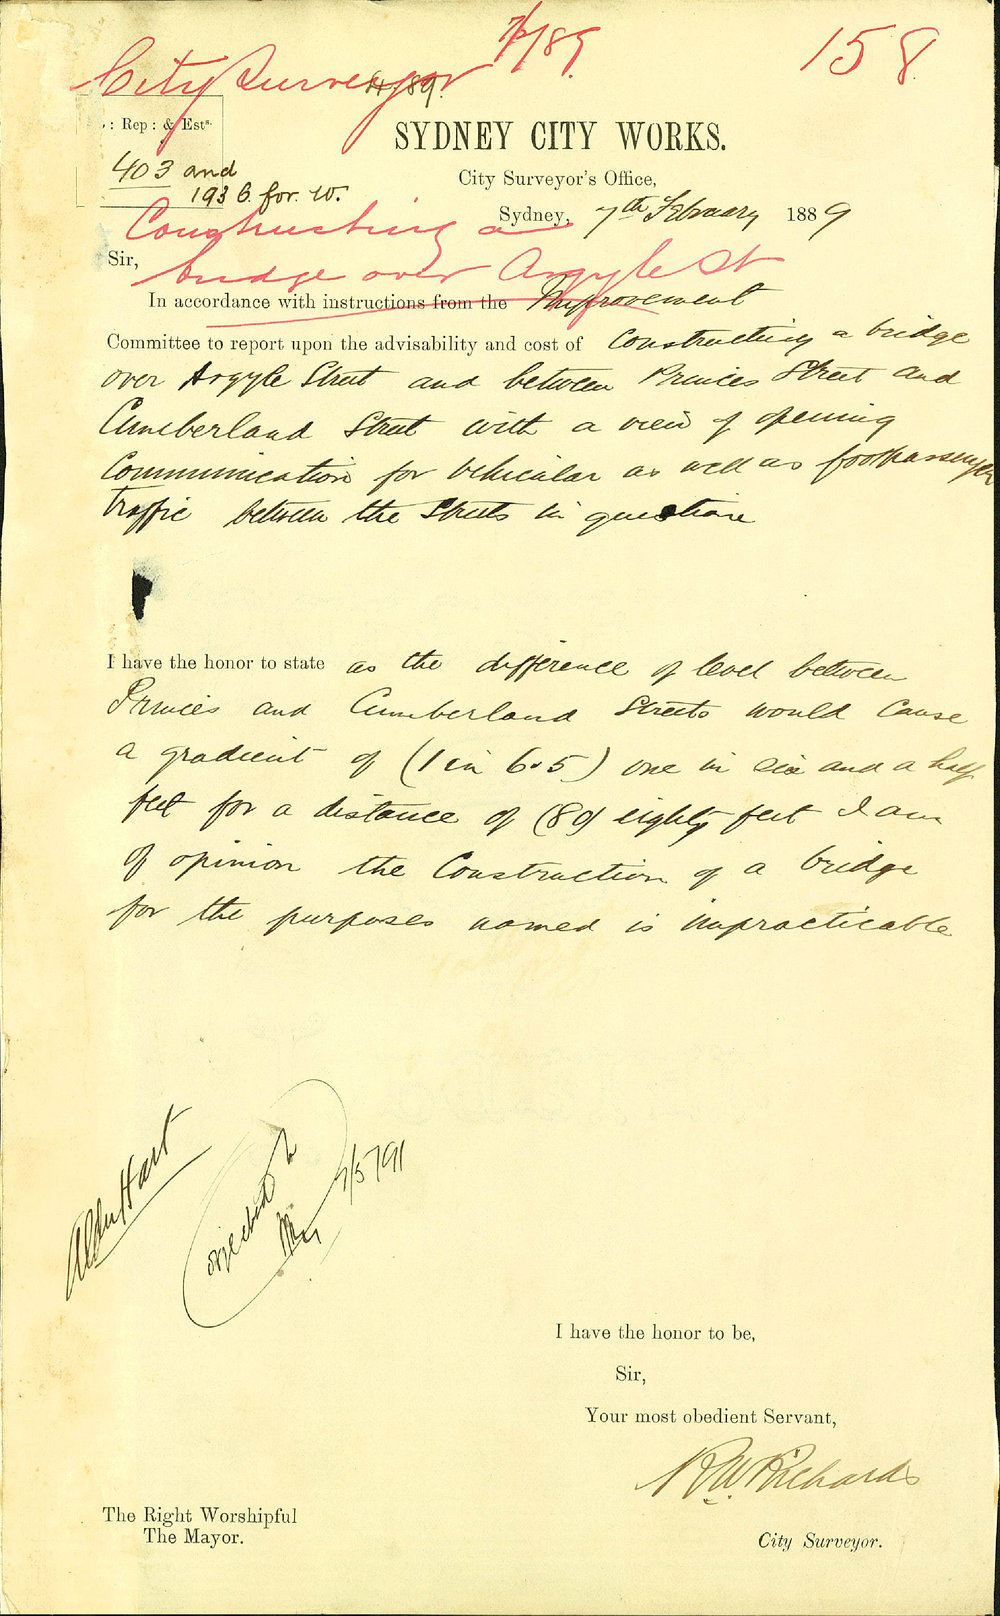 City Surveyor
7/89
158
: Rep : & Ests.
403 and
1936. for. W.
SYDNEY CITY WORKS.
City Surveyor's Office,
Sydney, 7th February 1889
Constructing a
bridge over Argyle St
Sir,
In accordance with instructions from the Improvement
Committee to report upon the advisability and cost of Constructing a bridge
over Argyle Street and between Princes Street and
Cumberland Street with a view of opening
Communication for vehicular as well as footpassenger
traffic between the Streets in question
I have the honor to state as the difference of level between
Princes and Cumberland Streets would Cause
a gradient of (1 in 6.5) one in six and a half
feet for a distance of (80) eighty feet I am
of opinion the Construction of a bridge
for the purposes named is impracticable
Aldn Hart
objected to
7/5/91
I have the honor to be,
Sir,
Your most obedient Servant,
R W Richards
City Surveyor.
The Right Worshipful
The Mayor.